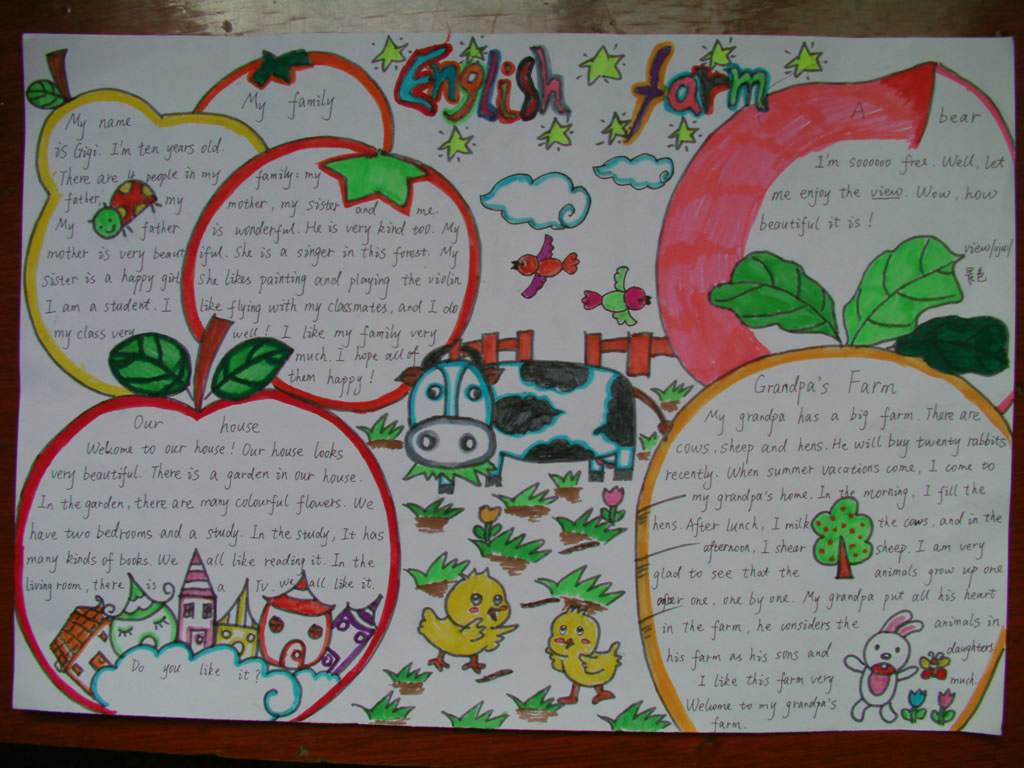 English farm
My family
My name
is Gigi. I'm ten years old.
There are 4 people in my family: my
father, my mother, my sister and me.
My father is wonderful. He is very kind too. My
mother is very beautiful. She is a singer in this forest. My
sister is a happy girl she likes painting and playing the violin
I am a student. I like flying with my classmates, and I do
my class very well! I like my family very
much. I hope all of
them happy!
A bear
I'm soooooo free. Well, let
me enjoy the view. Wow, how
beautiful it is!
景色
Our house
Welcome to our house! Our house looks
very beautiful. There is a garden in our house.
In the garden, there are many colourful flowers. We
have two bedrooms and a study. In the study, It has
many kinds of books. We all like reading it. In the
living room, there is a Tv. we all like it.
Do you like it?
Grandpa's Farm
My grandpa has a big farm. There are
cows, sheep and hens. He will buy twenty rabbits
recently. When summer vacations come, I come to
my grandpa's home. In the morning, I fill the
hens. After lunch, I milk the cows, and in the
afternoon, I shear sheep. I am very
glad to see that the animals grow up one
after one, one by one. My grandpa put all his heart
in The farm, he considers the animals in
his farm as his sons and daughters.
I like this farm very much.
Welcome to my grandpa's
farm.